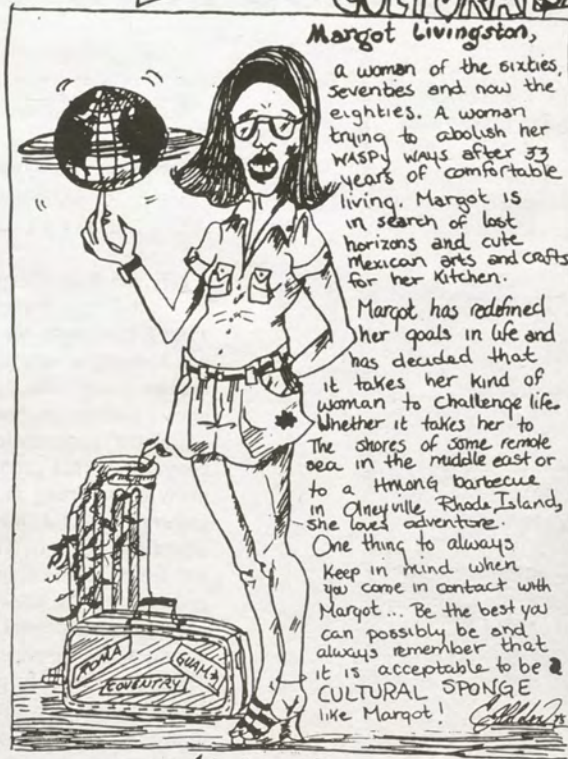 CULTURAL
Margot Livingston,
a woman of the sixties,
seventies and now the
eighties. A woman
trying to abolish her
WASPy WAYS after 33
years of comfortable
living. Margot is
in search of lost
horizons and cute
Mexican arts and crafts
for her kitchen.
Margot has redefined
her goals in life and
has decided that
it takes her kind of
woman to challenge life.
Whether it takes her to
The shores of some remote
sea in the middle east or
to a HMONG barbecue
in Olneyville, Rhode Island,
she loves adventure.
One thing to always
Keep in mind when
you come in contact with
Margot... Be the best you
can possibly be and
always remember that
it is acceptable to be a
CULTURAL SPONGE
like Margot!
ROMA
GUAM
COVENTRY